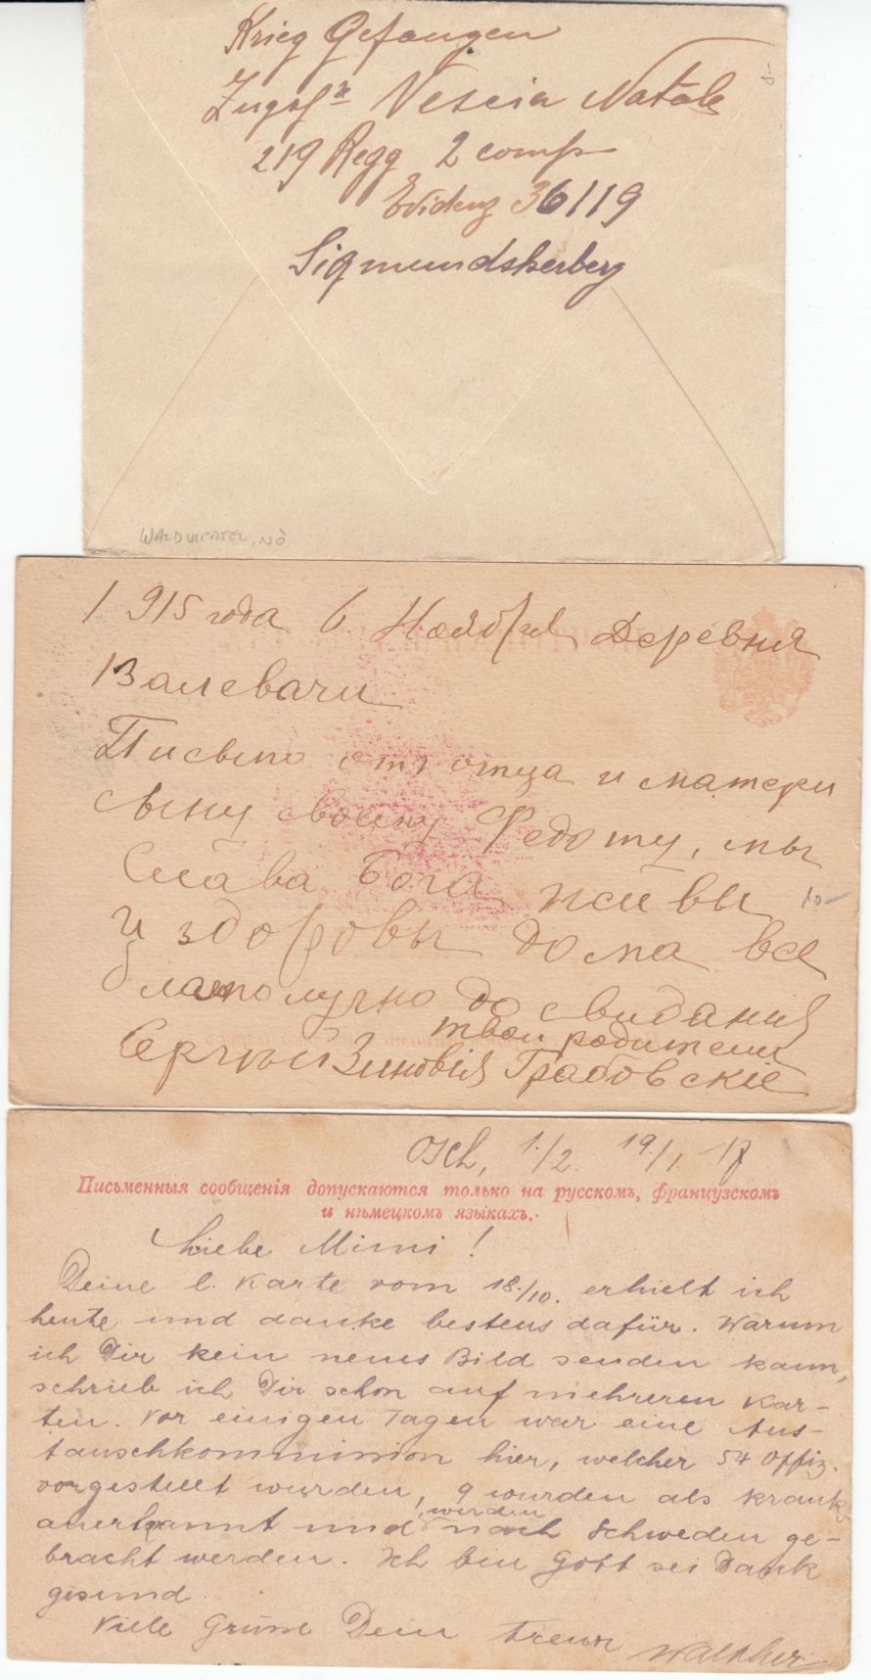 Krieg Gefangen
Zugsf. Vescia Natale
219 Regg 2 comp
Evidenz 36119
Sigmundsherberg
8.-
WALDVIERTEL, NÖ
1915 года 6 Ноября Деревня
Валевачи
Письмо отъ отца и матери
сыну своему Федоту, мы
Слава Бога живы
10-
и здоровы дома все
благополучно до свидания
твои родители
Сергѣй Зиновія Грабовскіе
Osch, 1./2. 19/1 17
Письменныя сообщенія допускаются только на русскомъ, французскомъ
и нѣмецкомъ языкахъ.
Liebe Mimi!
Deine l. Karte vom 18./10. erhielt ich
heute und danke bestens dafür. Warum
ich Dir kein neues Bild senden kann,
schrieb ich Dir schon auf mehreren Kar-
ten. Vor einigen Tagen war eine Aus-
tauschkommission hier, welcher 54 Offiz.
vorgestellt wurden, 9 wurden als krank
anerkannt und werden nach Schweden ge-
bracht werden. Ich bin Gott sei Dank
gesund.
Viele Grüsse Dein treuer Walther